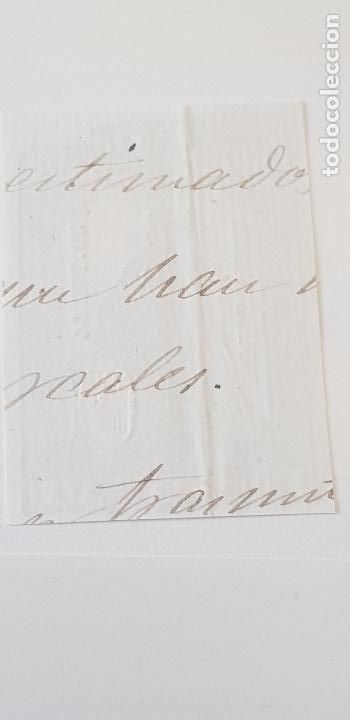 estimado
que han
reales.
todocoleccion